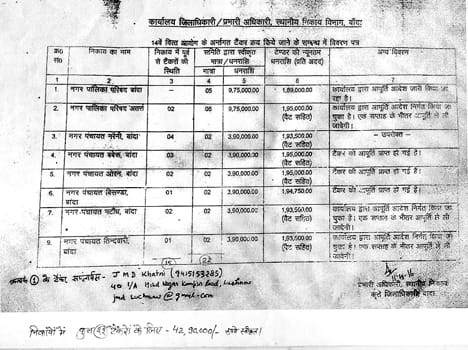 कार्यालय जिलाधिकारी/ प्रभारी अधिकारी, स्थानीय निकाय विभाग, बाँदा
14वें वित्त आयोग के अर्न्तगत टैंकर क्रय किये जाने के सम्बन्ध में विवरण पत्र
क्र0 सं0 निकाय का नाम निकाय में पूर्व से टैंकरों की स्थिति समिति द्वारा स्वीकृत मात्रा/धनराशि मात्रा धनराशि टेण्डर की न्यूनतम धनराशि (प्रति अदद) अन्य विवरण
1 2 3 4 5 6 7
1. नगर पालिका परिषद बांदा - 05 9,75,000.00 1,89,000.00 कार्यालय द्वारा आपूर्ति आदेश जारी किया जा रहा है।
2. नगर पालिका परिषद अतर्रा 02 05 9,75,000.00 1,95,000.00 (वैट सहित) कार्यालय द्वारा आपूर्ति आदेश निर्गत किया जा चुका है। एक सप्ताह के भीतर आपूर्ति ले ली जायेगी।
3. नगर पंचायत नरैनी, बांदा 04 02 3,90,000.00 1,93,500.00 (वैट सहित) - उपरोक्त -
4. नगर पंचायत बबेरू, बांदा 03 02 3,90,000.00 1,95,000.00 (वैट सहित) टैंकर की आपूर्ति प्राप्त हो गई है।
5. नगर पंचायत ओरन, बांदा 02 02 3,90,000.00 1,95,000.00 (वैट सहित) टैंकर की आपूर्ति प्राप्त हो गई है।
6. नगर पंचायत बिसण्डा, बांदा 01 02 3,90,000.00 1,94,750.00 टैंकर की आपूर्ति प्राप्त हो गई है।
7. नगर पंचायत मटौंध, बांदा 02 02 3,90,000.00 1,93,500.00 (वैट सहित) कार्यालय द्वारा आपूर्ति आदेश निर्गत किया जा चुका है। एक सप्ताह के भीतर आपूर्ति ले ली जायेगी।
9. नगर पंचायत तिन्दवारी, बांदा 01 02 3,90,000.00 1,93,500.00 (वैट सहित) कार्यालय द्वारा आपूर्ति आदेश निर्गत किया जा चुका है। एक सप्ताह के भीतर आपूर्ति ले ली जायेगी।
15 22
1 के टैंकर J M D Khatri (9415153285)
40 1/A Hind Nagar Kanpur Road, Lucknow
jmd lucknow @ gmail.com
प्रभारी अधिकारी, स्थानीय निकाय
कृते जिलाधिकारी बांदा
निकायों में कुल 22 टैंकरों के लिये - 42,90,000/-